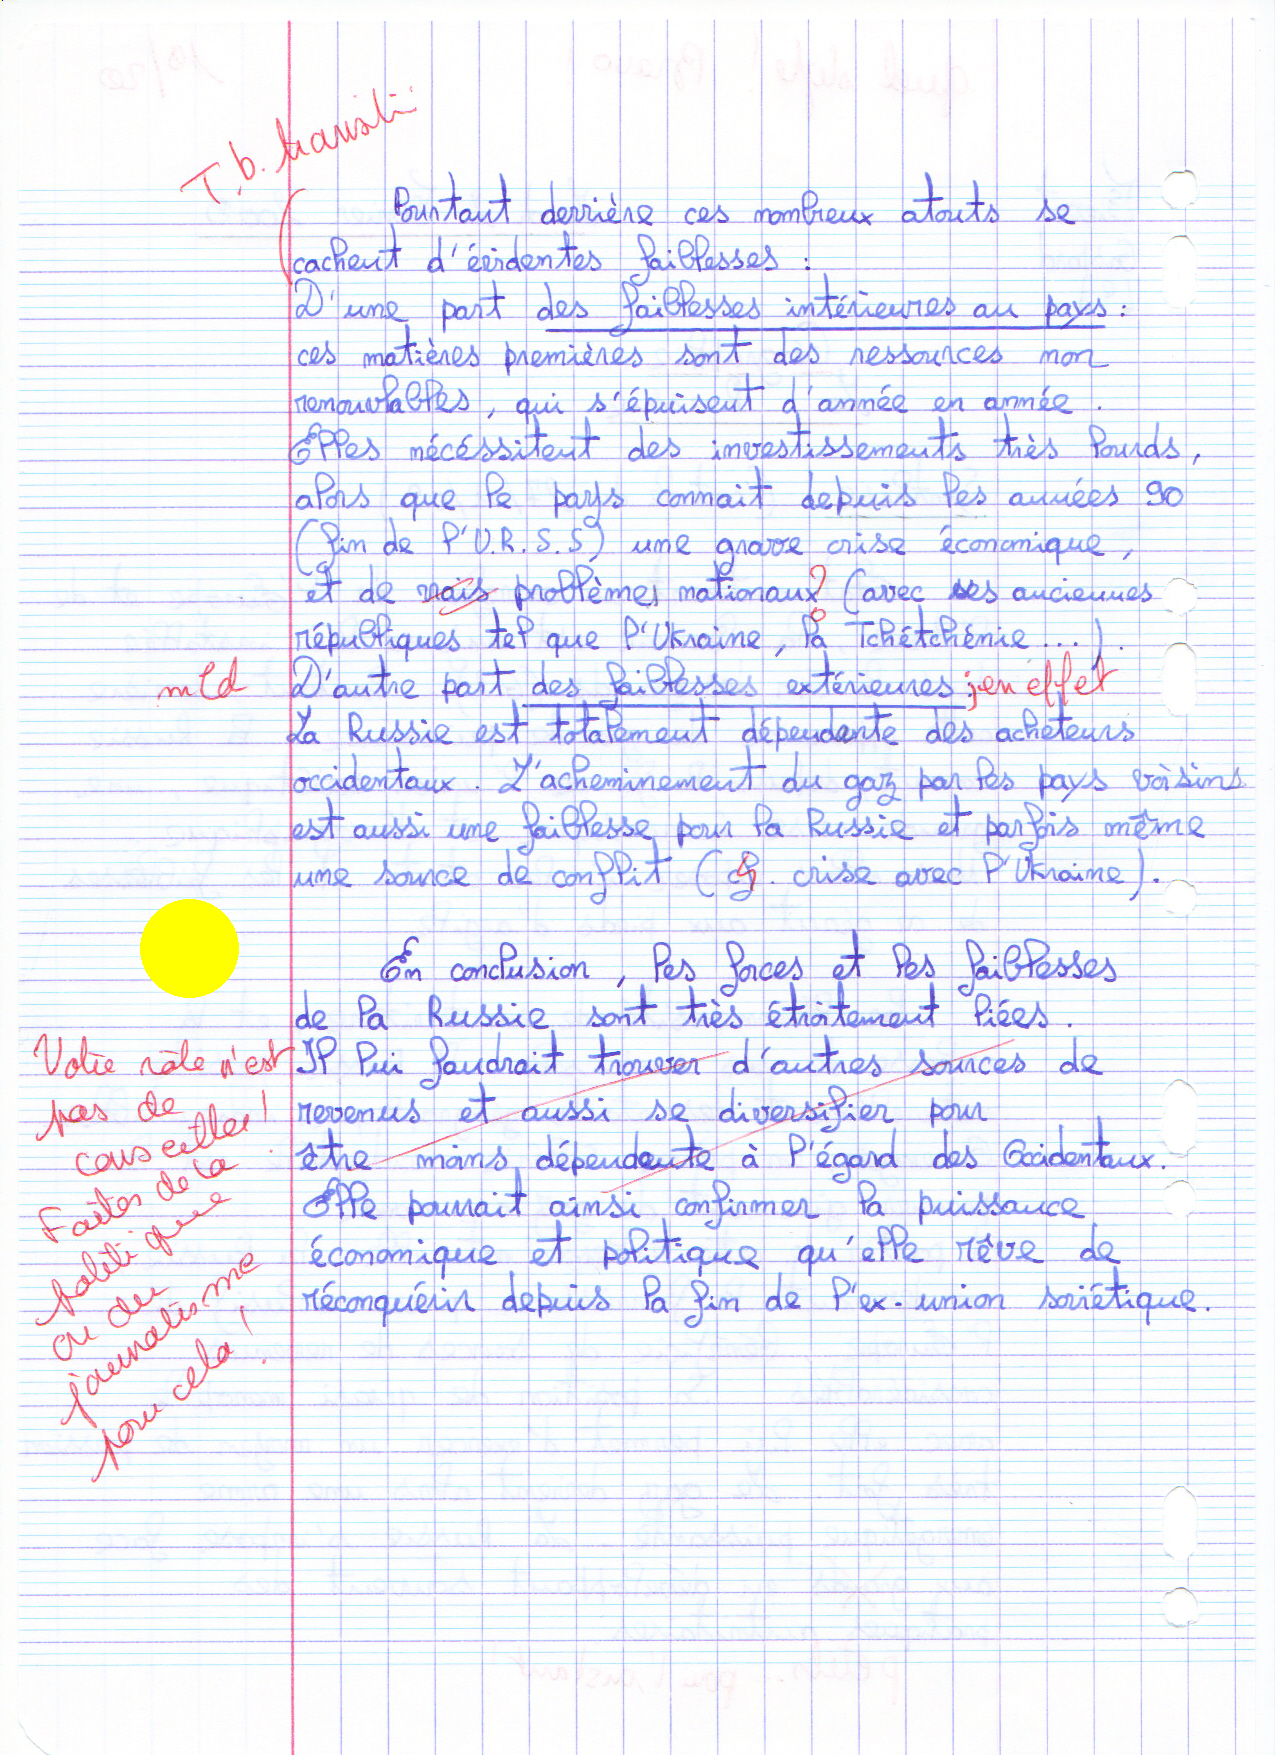 T.b. transiti°
Pourtant derrière ces nombreux atouts se
cachent d'évidentes faiblesses :
D'une part des faiblesses intérieures au pays :
ces matières premières sont des ressources non
renouvlables, qui s'épuisent d'année en année.
Elles nécéssitent des investissements très lourds,
alors que le pays connait depuis les années 90
(fin de l'U.R.S.S) une grave crise économique,
et de vrais problèmes nationaux? (avec ses anciennes
républiques tel que l'Ukraine, la Tchétchénie ...).
mld
D'autre part des faiblesses extérieures : en effet
La Russie est totalement dépendante des acheteurs
occidentaux. L'acheminement du gaz par les pays voisins
est aussi une faiblesse pour la Russie et parfois même
une source de conflit (cf. crise avec l'Ukraine).
En conclusion, les forces et les faiblesses
de la Russie sont très étroitement liées.
Il lui faudrait trouver d'autres sources de
revenus et aussi se diversifier pour
être moins dépendente à l'égard des Occidentaux.
Elle pourrait ainsi confirmer la puissance
économique et politique qu'elle rêve de
réconquérir depuis la fin de l'ex-union soviétique.
Votre rôle n'est
pas de
conseiller !
Faites de la
politique
ou du
journalisme
pour cela !